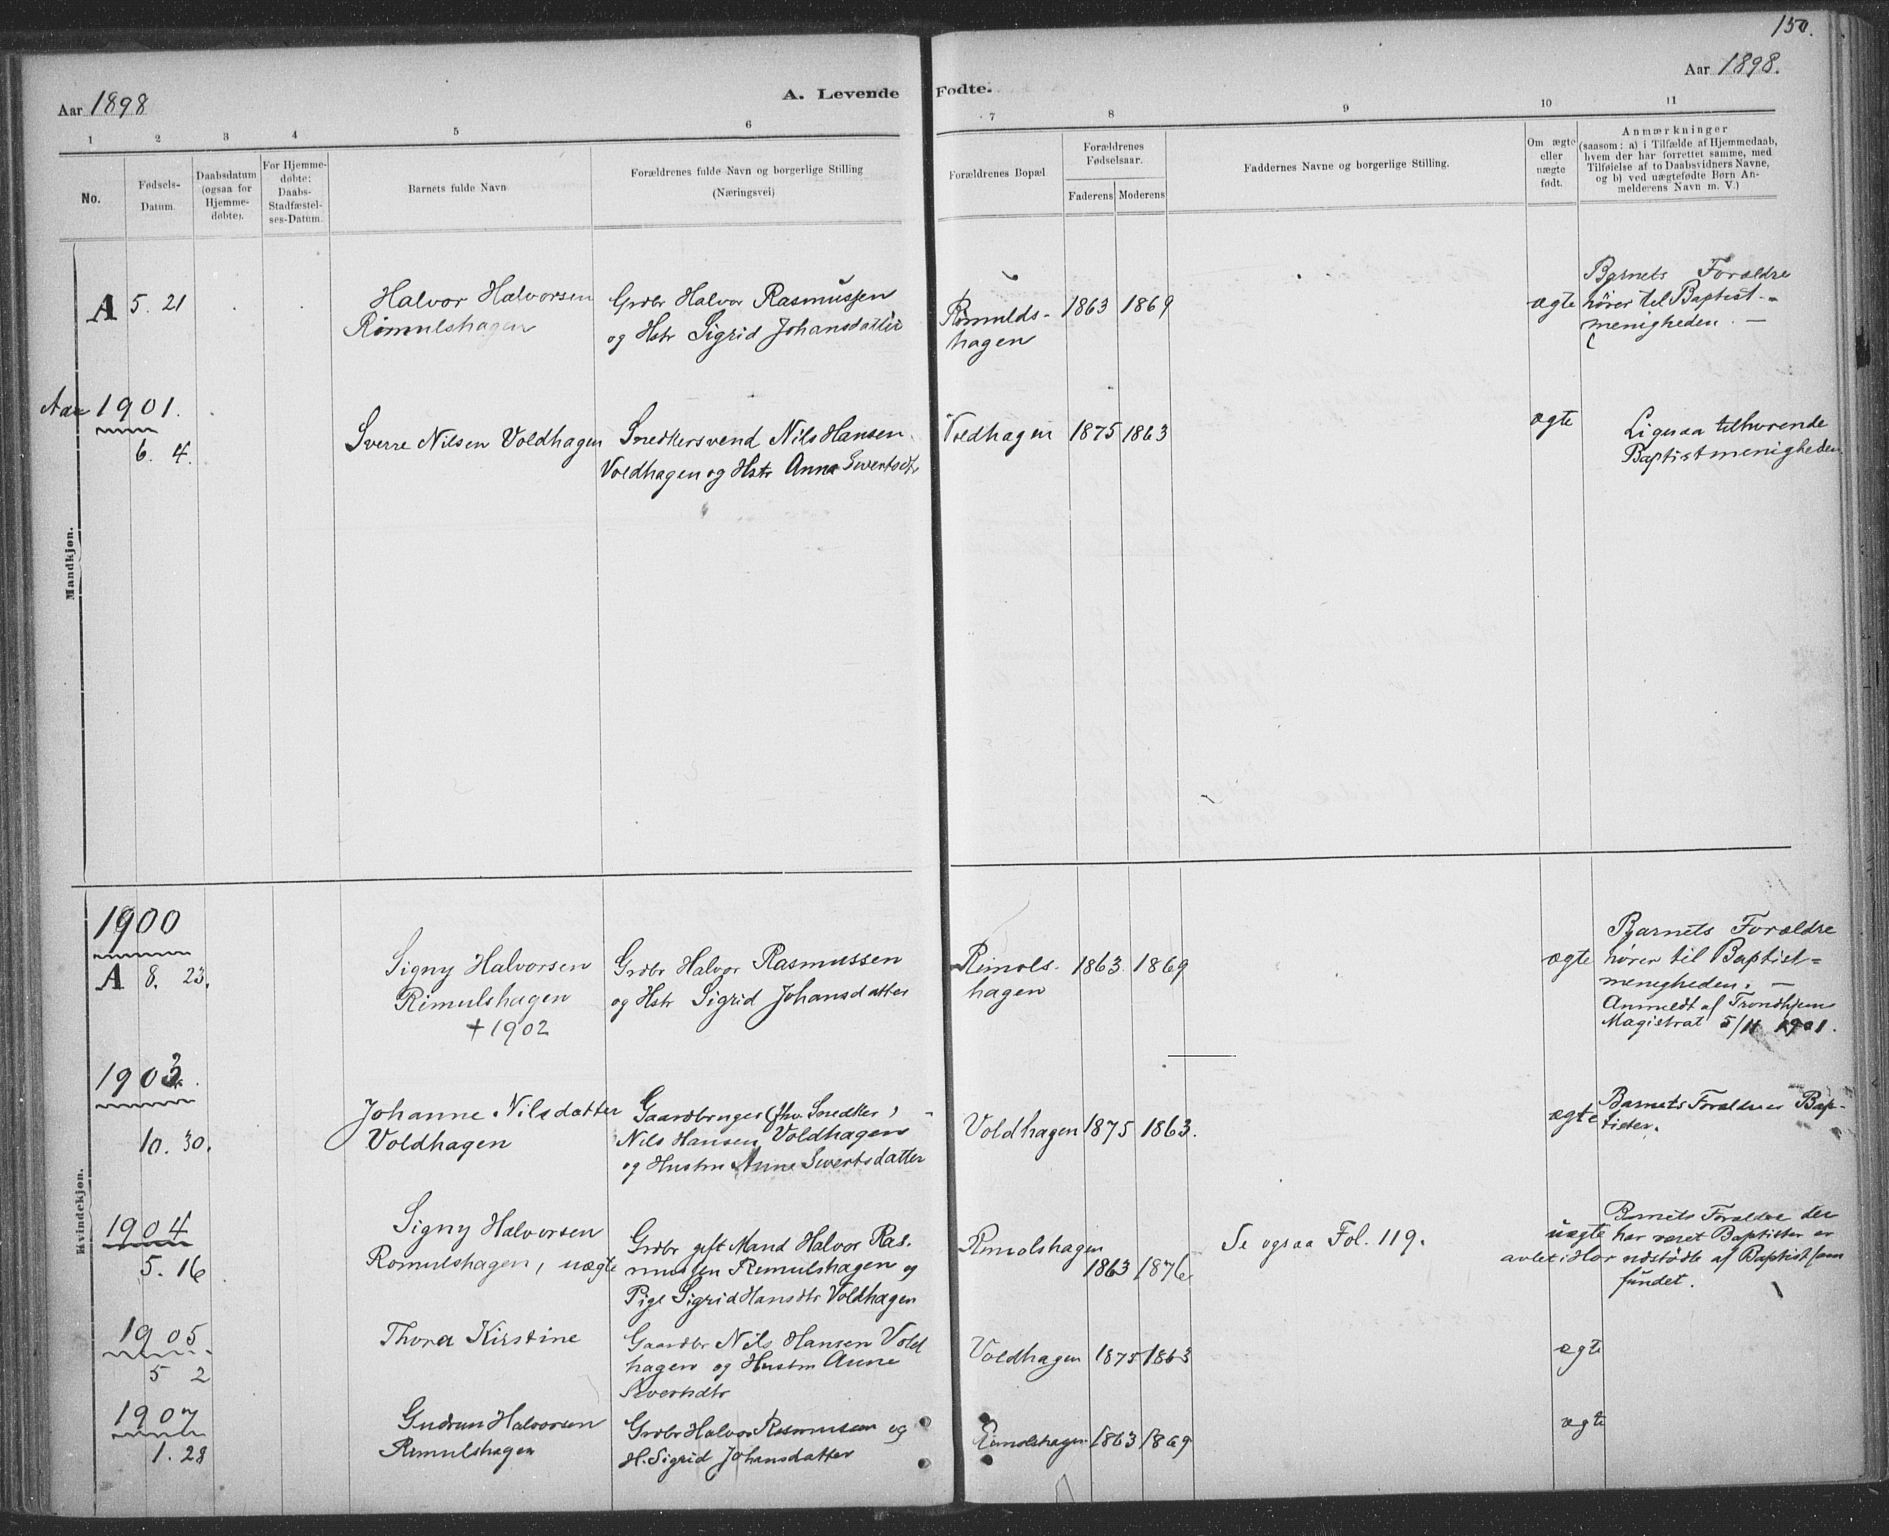 150.
Aar 1898
A. Levende
Fødte.
Aar 1898.
1 2 3 4 5 6 7 8 9 10 11
No.
Fødsels-
Datum.
Daabsdatum
(ogsaa for
Hjemme-
døbte).
For Hjemme-
døbte:
Daabs-
Stadfæstel-
ses-Datum.
Barnets fulde Navn
Forældrenes fulde Navn og borgerlige Stilling
(Næringsvei)
Forældrenes Bopæl
Forældrenes
Fødselsaar.
Faderens Moderens
Faddernes Navne og borgerlige Stilling.
Om ægte
eller
uægte
født.
Anmærkninger
(saasom: a) i Tilfælde af Hjemmedaab,
hvem der har forrettet samme, med
Tilføielse af to Daabsvidners Navne,
og b) ved uægtefødte Børn An-
melderens Navn m. V.)
Mandkjøn.
A 5. 21
Halvor Halvorsen
Rimulshagen
Grdbr Halvor Rasmussen
og Hstr Sigrid Johansdatter
Romulds-
hagen
1863 1869
ægte
Barnets Forældre
hører til Baptist-
menigheden. —
Aar 1901.
6. 4.
Sverre Nilsen Voldhagen
Snedkersvend Nils Hansen
Voldhagen og Hstr Anne Sivertsdtr
Voldhagen
1875 1863
ægte
Ligesaa tilhørende
Baptistmenigheden
Kvindekjøn.
1900
A 8. 23.
Signy Halvorsen
Rimulshagen
+ 1902
Grdbr Halvor Rasmussen
og Hstr Sigrid Johansdatter
Rimols-
hagen
1863 1869
ægte
Barnets Forældre
hører til Baptist-
menigheden. —
Anmeldt af Trondhjems
Magistrat 5/11 1901.
1903.
10. 30.
Johanne Nilsdatter
Voldhagen
Gaardbruger (fhv. Snedker)
Nils Hansen Voldhagen
og Hustru Anne Sivertsdatter
Voldhagen
1875 1863.
ægte
Barnets Forældre Bap-
tister.
1904
5. 16
Signy Halvorsen
Romulshagen, uægte
Grdbr gift Mand Halvor Ras-
mussen Rimulshagen og
Pige Sigrid Hansdtr Voldhagen
Rimolshagen
1863 1876
Se ogsaa Fol. 119.
uægte
avlet i Hor
Barnets Forældre der
har været Baptister er
udstødte af Baptistsam
fundet.
1905
5 2
Thora Kirstine
Gaardbr Nils Hansen Vold
hagen og Hustru Anne
Sivertsdtr
Voldhagen
1875 1863
ægte
1907
1. 28
Gudrun Halvorsen
Rimulshagen
Grdbr Halvor Rasmussen og
H. Sigrid Johansdatter
Rimolshagen
1863 1869
ægte